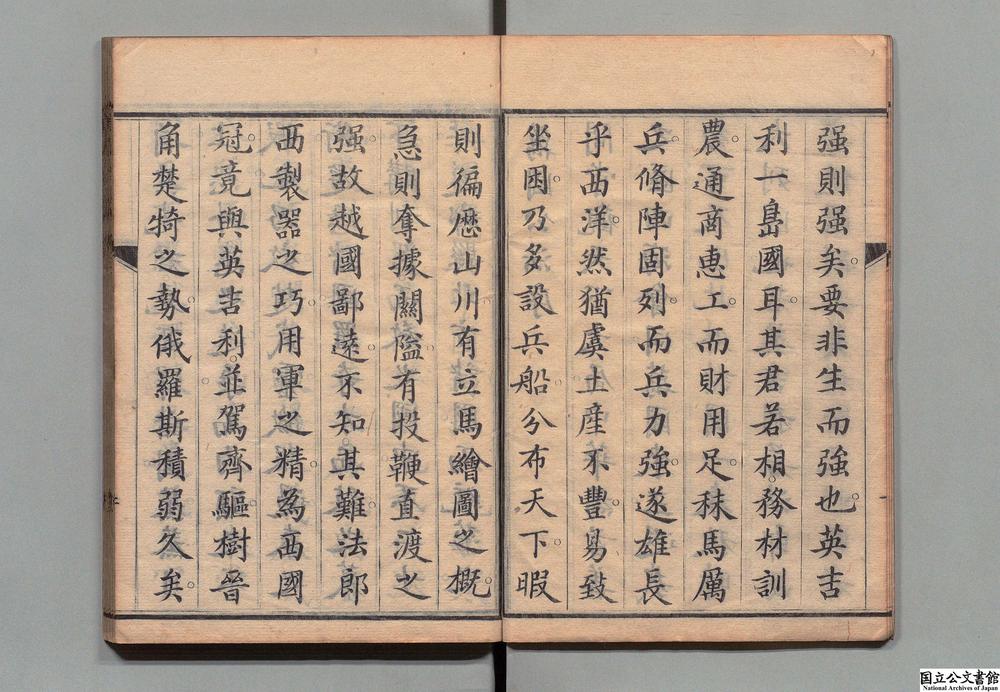 强則强矣。要非生而強也。英吉
利一島國耳。其君若相。務材訓
農。通商恵工。而財用足。秣馬厲
兵。脩陣固列。而兵力強。遂雄長
乎西洋。然猶虞土産不豐。易致
坐困。乃多設兵船。分布天下。暇
則徧歴山川。有立馬繪圖之概。
急則奪據關隘。有投鞭直渡之
强。故越國鄙遠。不知其難。法郎
西製器之巧。用軍之精。為西國
冠。竟與英吉利。並駕齊驅。樹晉
角楚犄之勢。俄羅斯積弱久矣。
国立公文書館
National Archives of Japan